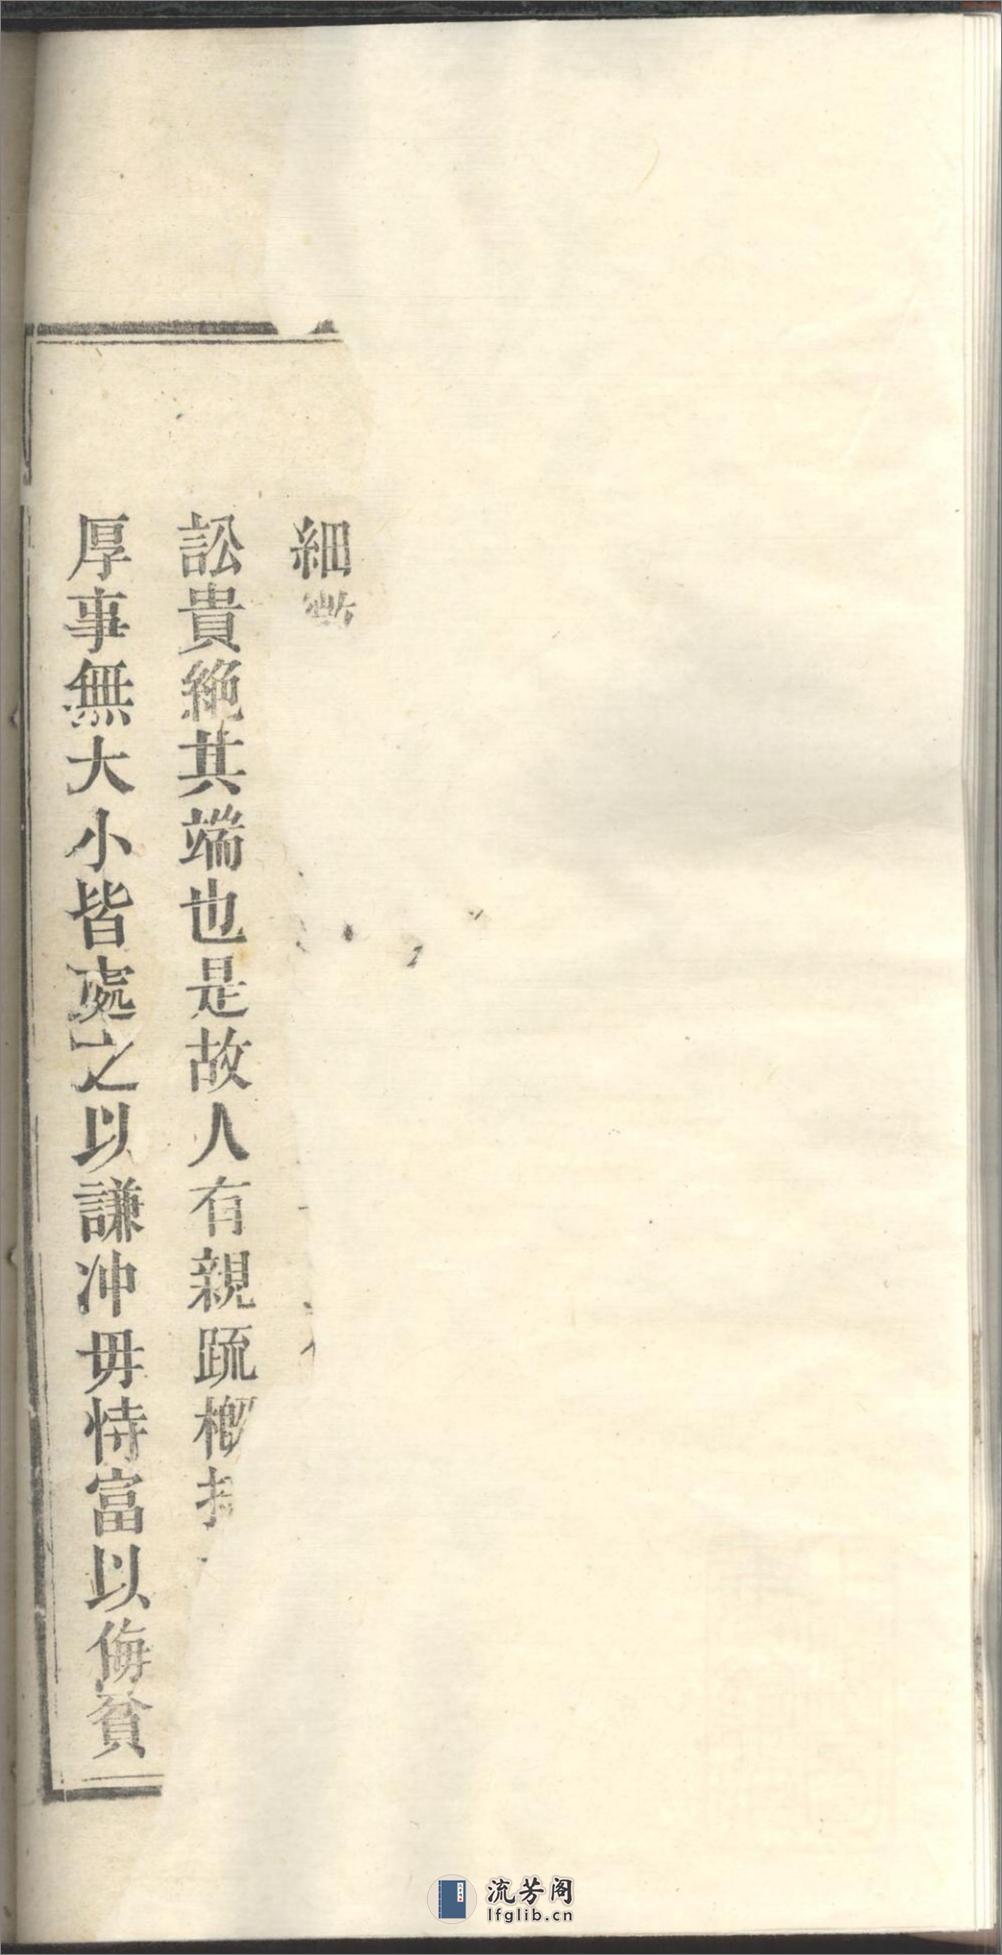 細
訟貴絶其端也是故人有親踈概
厚事無大小皆處之以謙冲毋恃富以侮貧
流芳阁
lfglib.cn